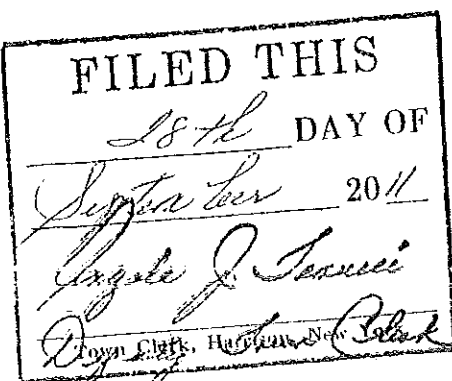 FILED THIS
28th DAY OF
September 2011
Angela J.
Deputy Town Clerk
Town Clerk, Harrison, New